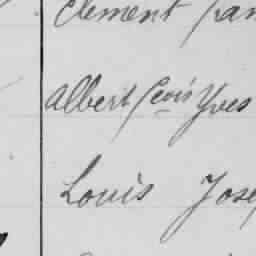 Clement
Albert Louis Yves
Louis Jose